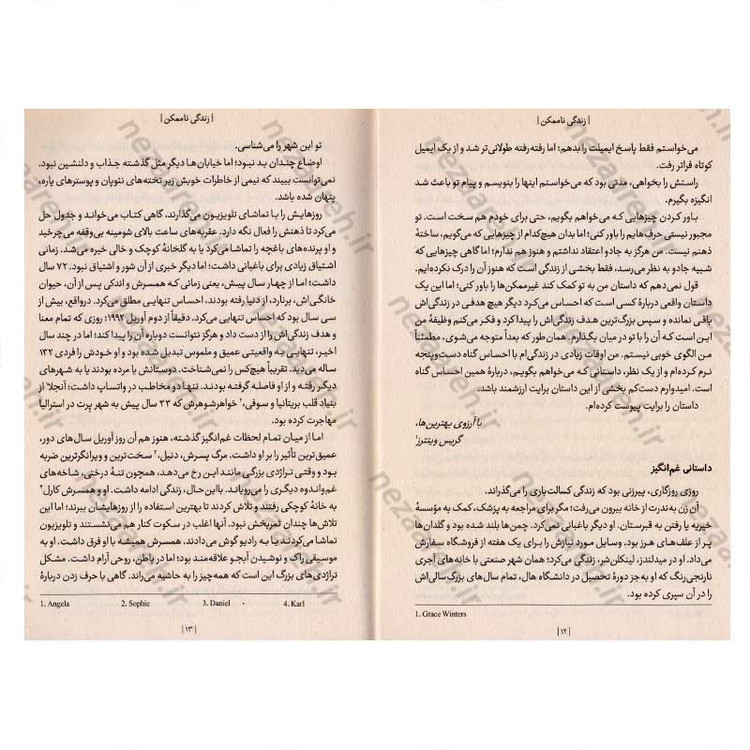 | زندگی ناممکن |
می‌خواستم فقط پاسخ ایمیلت را بدهم؛ اما رفته‌رفته طولانی‌تر شد و از یک ایمیل
کوتاه فراتر رفت.
راستش را بخواهی، مدتی بود که می‌خواستم اینها را بنویسم و پیام تو باعث شد
انگیزه بگیرم.
باور کردن چیزهایی که می‌خواهم بگویم، حتی برای خودم هم سخت است. تو
مجبور نیستی حرف‌هایم را باور کنی؛ اما بدان هیچ‌کدام از چیزهایی که می‌گویم، ساختهٔ
ذهنم نیست. من هرگز به جادو اعتقاد نداشتم و هنوز هم ندارم؛ اما گاهی چیزهایی که
شبیه جادو به نظر می‌رسد، فقط بخشی از زندگی است که هنوز آن را درک نکرده‌ایم.
قول نمی‌دهم که داستان من به تو کمک کند غیرممکن‌ها را باور کنی؛ اما این یک
داستان واقعی دربارهٔ کسی است که احساس می‌کرد دیگر هیچ هدفی در زندگی‌اش
باقی نمانده و سپس بزرگ‌ترین هدف زندگی‌اش را پیدا کرد و فکر می‌کنم وظیفهٔ من
این است که آن را با تو در میان بگذارم. همان‌طور که بعداً متوجه می‌شوی، مطمئناً
من الگوی خوبی نیستم. من اوقات زیادی در زندگی‌ام با احساس گناه دست‌وپنجه
نرم کرده‌ام و از یک نظر، داستانی که می‌خواهم بگویم، دربارهٔ همین احساس گناه
است. امیدوارم دست‌کم بخشی از این داستان برایت ارزشمند باشد.
داستان را برایت پیوست کرده‌ام.
با آرزوی بهترین‌ها،
گریس وینترز¹
داستانی غم‌انگیز
روزی روزگاری، پیرزنی بود که زندگی کسالت‌باری را می‌گذراند.
آن زن به‌ندرت از خانه بیرون می‌رفت؛ مگر برای مراجعه به پزشک، کمک به مؤسسهٔ
خیریه یا رفتن به قبرستان. او دیگر باغبانی نمی‌کرد. چمن‌ها بلند شده بود و گلدان‌ها
پر از علف‌های هرز بود. وسایل مورد نیازش را برای یک هفته از فروشگاه سفارش
می‌داد. او در میدلندز، لینکلن‌شر، زندگی می‌کرد؛ همان شهر صنعتی با خانه‌های آجری
نارنجی‌رنگ که او به‌جز دورهٔ تحصیل در دانشگاه هال، تمام سال‌های بزرگ‌سالی‌اش
را در آن سپری کرده بود.
1. Grace Winters
| ۱۲ |
| زندگی ناممکن |
تو این شهر را می‌شناسی.
اوضاع چندان بد نبود؛ اما خیابان‌ها دیگر مثل گذشته جذاب و دلنشین نبود.
نمی‌توانست ببیند که نیمی از خاطرات خوبش زیر تخته‌های نئوپان و پوسترهای پاره،
پنهان شده باشد.
روزهایش را با تماشای تلویزیون می‌گذراند، گاهی کتاب می‌خواند و جدول حل
می‌کرد تا ذهنش را فعال نگه دارد. عقربه‌های ساعت بالای شومینه بی‌وقفه می‌چرخید
و او پرنده‌های باغچه را تماشا می‌کرد یا به گلخانهٔ کوچک و خالی خیره می‌شد. زمانی
اشتیاق زیادی برای باغبانی داشت؛ اما دیگر خبری از آن شور و اشتیاق نبود. ۷۲ سال
داشت؛ اما از چهار سال پیش، یعنی زمانی که همسرش و اندکی پس از آن، حیوان
خانگی‌اش، برنارد، از دنیا رفته بودند، احساس تنهایی مطلق می‌کرد. درواقع، بیش از
سی سال بود که احساس تنهایی می‌کرد. دقیقاً از دوم آوریل ۱۹۹۲؛ روزی که تمام معنا
و هدف زندگی‌اش را از دست داد و هرگز نتوانست دوباره آن را پیدا کند؛ اما در چند سال
اخیر، تنهایی به واقعیتی عمیق و ملموس تبدیل شده بود و او خودش را فردی ۱۳۲
ساله می‌دید. تقریباً هیچ‌کس را نمی‌شناخت. دوستانش یا مرده بودند یا به شهرهای
دیگر رفته و از او فاصله گرفته بودند. تنها دو مخاطب در واتساپ داشت؛ آنجلا¹ از
بنیاد قلب بریتانیا و سوفی،² خواهرشوهرش که ۳۳ سال پیش به شهر پرت در استرالیا
مهاجرت کرده بود.
اما از میان تمام لحظات غم‌انگیز گذشته، هنوز هم آن روز آوریل سال‌های دور،
عمیق‌ترین تأثیر را بر او داشت. مرگ پسرش، دنیل،³ سخت‌ترین و ویرانگرترین ضربه
بود و وقتی تراژدی بزرگی مانند این رخ می‌دهد، همچون تنهٔ درختی، شاخه‌های
غم‌واندوه دیگری را می‌رویاند. بااین‌حال، زندگی ادامه داشت. او و همسرش کارل⁴
به خانهٔ کوچکی رفتند و تلاش کردند تا بهترین استفاده را از روزهایشان ببرند؛ اما این
تلاش‌ها چندان ثمربخش نبود. آنها اغلب در سکوت کنار هم می‌نشستند و تلویزیون
تماشا می‌کردند یا به رادیو گوش می‌دادند. همسرش همیشه با او فرق داشت. او به
موسیقی راک و نوشیدن آبجو علاقه‌مند بود؛ اما در باطن، روحی آرام داشت. مشکل
تراژدی‌های بزرگ این است که همه‌چیز را به حاشیه می‌راند. گاهی با حرف زدن دربارهٔ
1. Angela 2. Sophie 3. Daniel 4. Karl
| ۱۳ |
nezaareh.ir